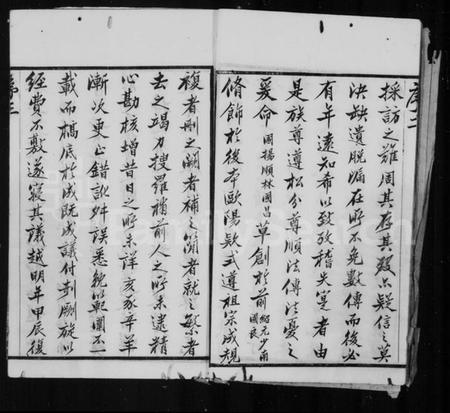 序二
採訪之難周其存其歿以疑信之莫
決缺遺脫漏在所不免數傳而後必
有年遠知希以致攷稽失寔者由
是族尊遵松分尊順法傳法憂之
爰命周揚順林國昌草創於前紹元少甫國良
脩飾於後本歐陽欵式導祖宗成規
複者刪之闕者補之簡者就之繁者
去之竭力搜羅補前人之所未逮精
心勘核增昔日之所未詳亥豕辛羊
漸次更正錯訛舛誤悉範以範圍不一
載而稿底於成既成議付剞劂旋以
經費不敷遂寢其議越明年甲辰後
序三